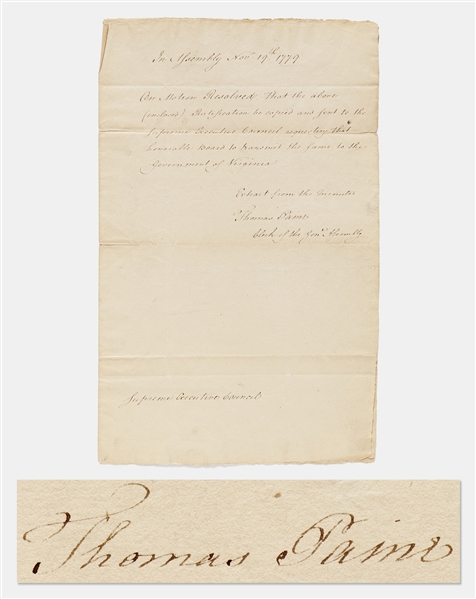 In Assembly Nov.r 19.th 1779
On Motion Resolved That the above
(enclosed) Ratification be copied and sent to the
Supreme Executive Council requesting that
honorable Board to transmit the same to the
Government of Virginia
Extract from the minutes
Thomas Paine
Clerk of the Gen.l Assembly
Supreme Executive Council
Thomas Paine